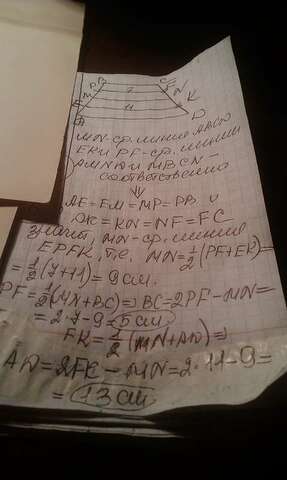 B C
P 7 F
M N
E 11 K
A D
MN-ср. линия ABCD
EK и PF-ср. линии
AMND и MBCN-
соответственно
⇓
AE=EM=MP=PB и
DK=KN=NF=FC
Значит, MN-ср. линия
EPFK, т.е. MN=1/2(PF+EK)=
=1/2(7+11)=9 см.
PF=1/2(MN+BC)⇒BC=2PF-MN=
=2·7-9=5 см
EK=1/2(MN+AD)⇒
AD=2EK-MN=2·11-9=
=13 см